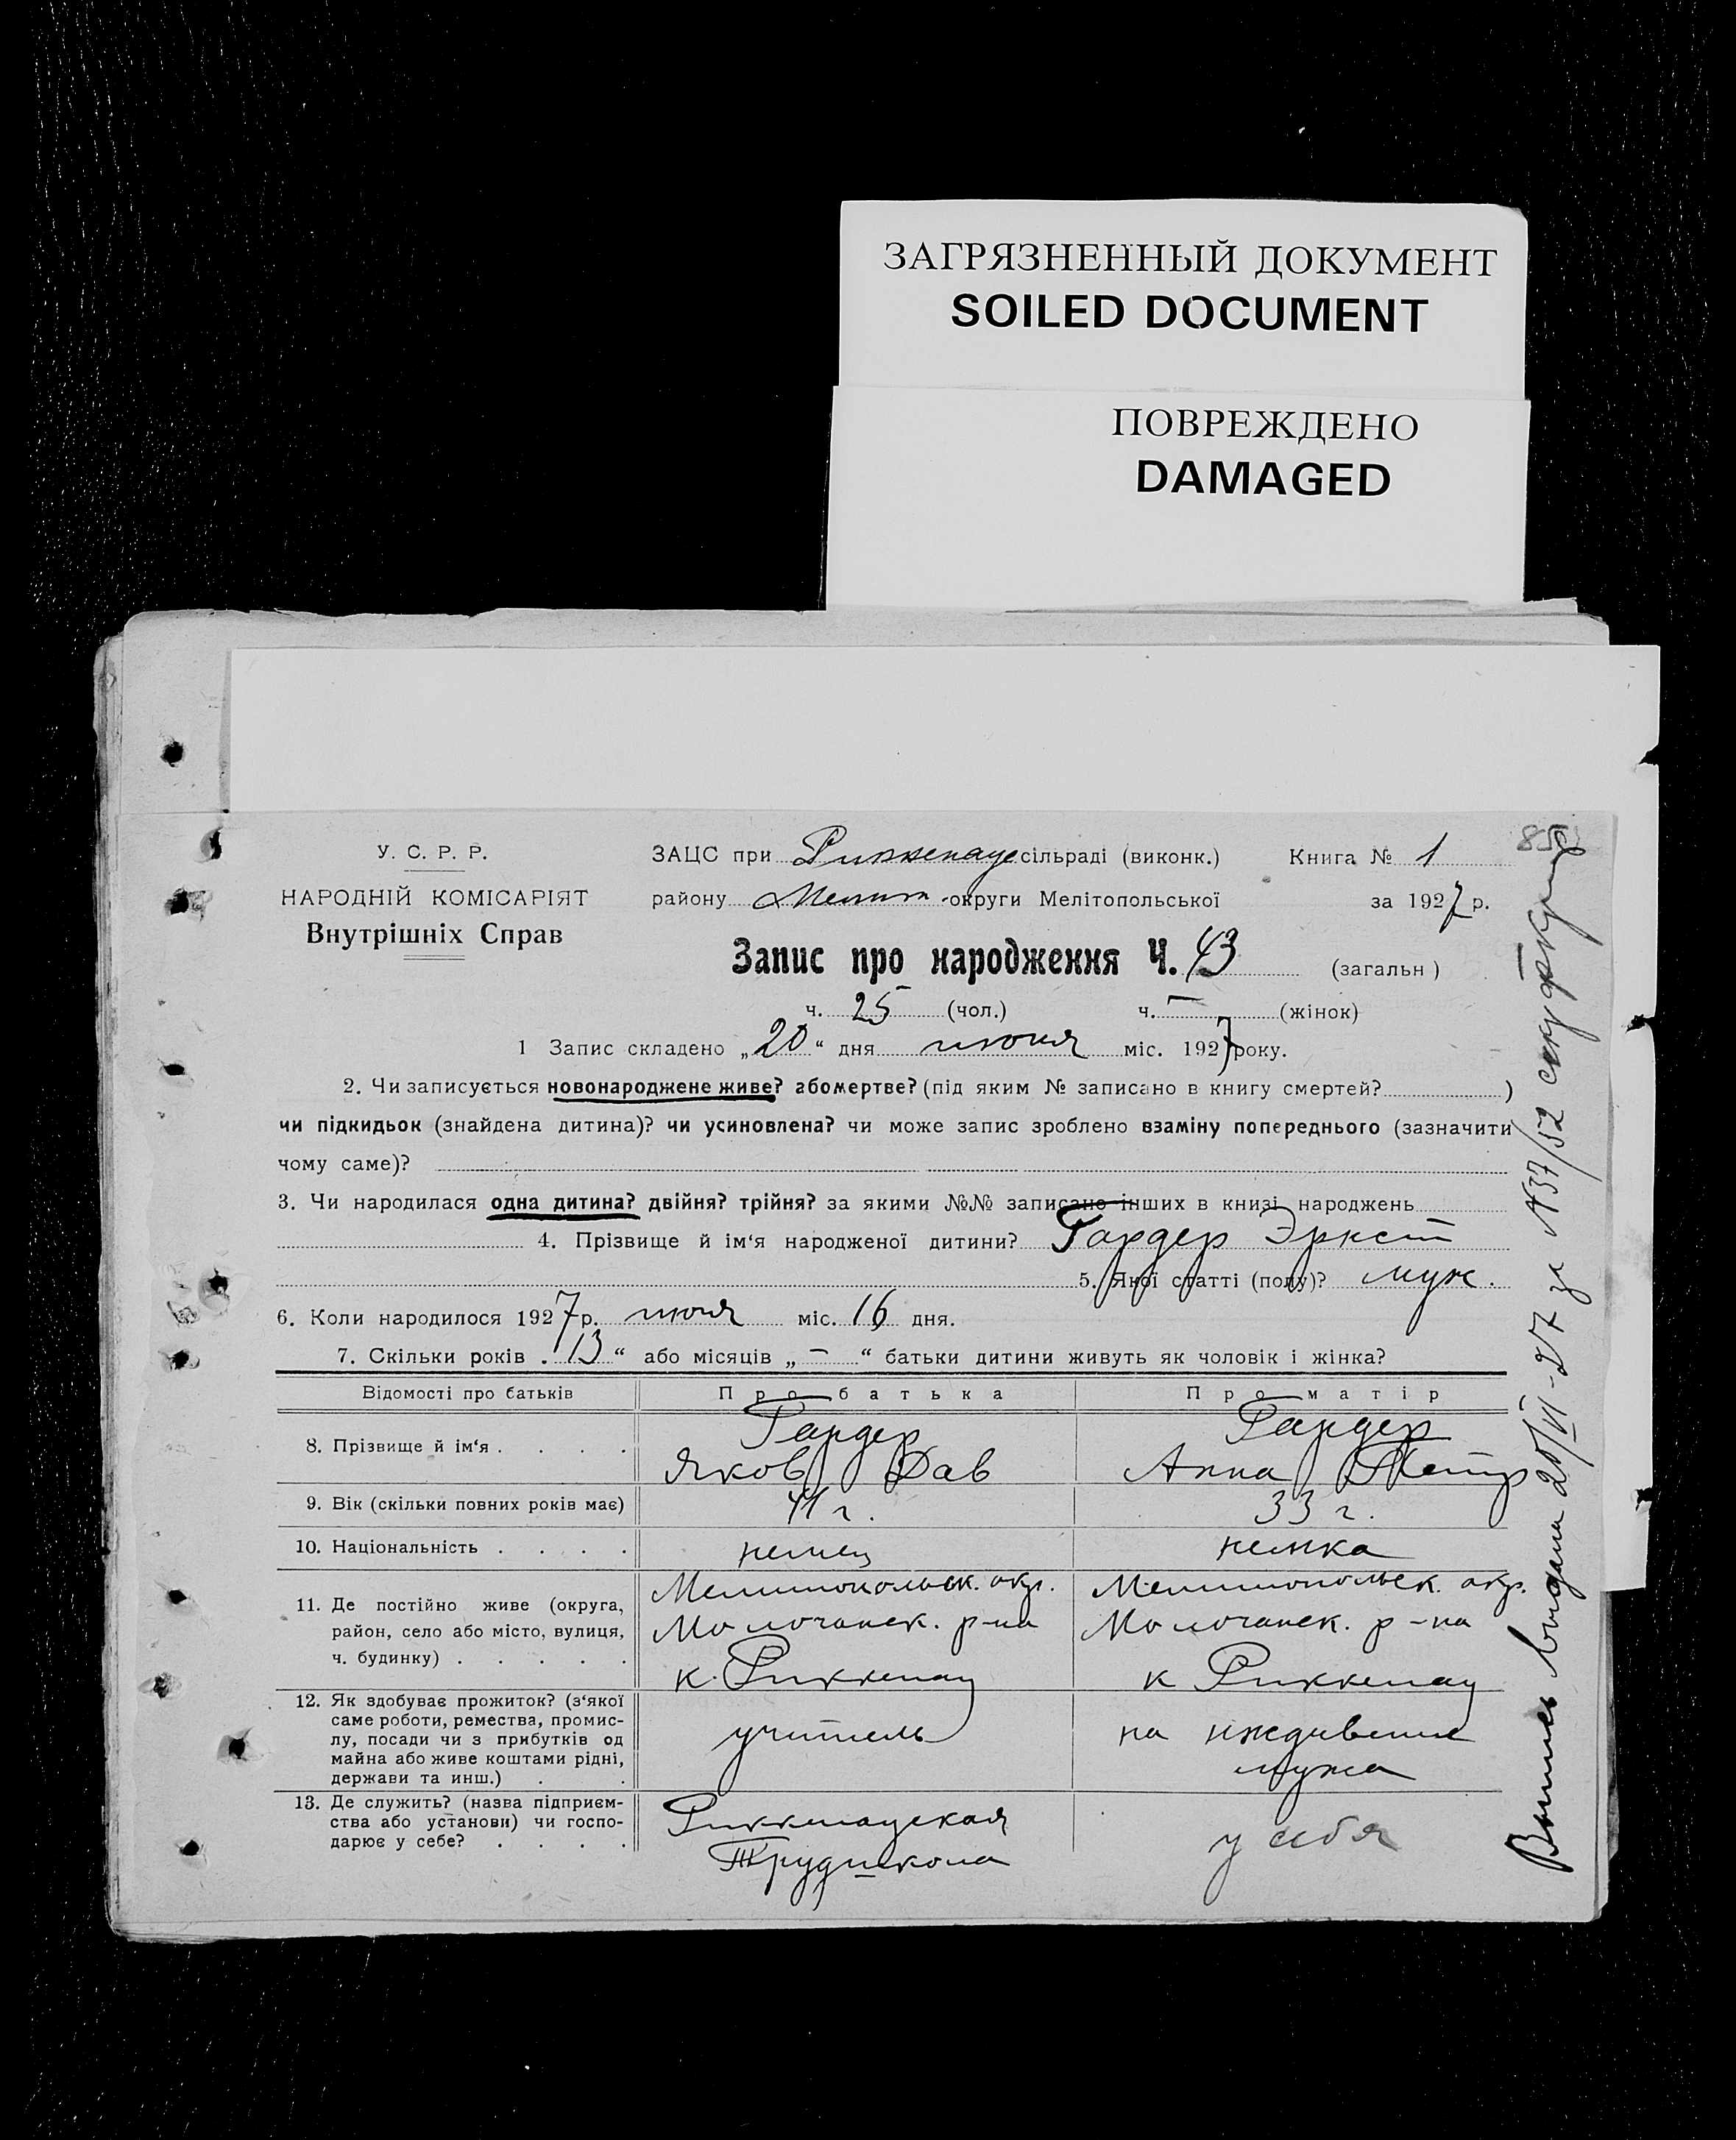 ЗАГРЯЗНЕННЫЙ ДОКУМЕНТ
SOILED DOCUMENT
ПОВРЕЖДЕНО
DAMAGED
85
У. С. Р. Р.
НАРОДНІЙ КОМІСАРІЯТ
Внутрішніх Справ
ЗАЦС при Риккенауе сільраді (виконк.) Книга № 1
району Мелит. округи Мелітопольської за 1927 р.
Запис про народження Ч. 43 (загальн)
ч. 25 (чол.) ч. — (жінок)
1 Запис складено „20“ дня июня міс. 1927 року.
2. Чи записується новонароджене живе? або мертве? (під яким № записано в книгу смертей? )
чи підкидьок (знайдена дитина)? чи усиновлена? чи може запис зроблено взаміну попереднього (зазначити
чому саме)?
3. Чи народилася одна дитина? двійня? трійня? за якими №№ записано інших в книзі народжень
4. Прізвище й ім‘я народженої дитини? Гардер Эрнст
5. Якої статті (полу)? муж.
6. Коли народилося 1927 р. июня міс. 16 дня.
7. Скільки років „13“ або місяців „—“ батьки дитини живуть як чоловік і жінка?
Відомості про батьків Про батька Про матір
8. Прізвище й ім‘я . . . . Гардер Яков Дав Гардер Анна Петр
9. Вік (скільки повних років має) 41 г. 33 г.
10. Національність . . . . немец немка
11. Де постійно живе (округа, Мелитопольск. окр. Мелитопольск. окр.
район, село або місто, вулиця, Молочанск. р-на Молочанск. р-на
ч. будинку) . . . . . к. Риккенау к Риккенау
12. Як здобуває прожиток? (з‘якої
саме роботи, ремества, промис-
лу, посади чи з прибутків од учитель на иждивение
майна або живе коштами рідні, мужа
держави та инш.) . .
13. Де служить? (назва підприєм- Риккенауская
ства або установи) чи госпо- у себя
дарює у себе? . . . . Трудшкола
Выпись выдана 20/VI-27 за №37/52